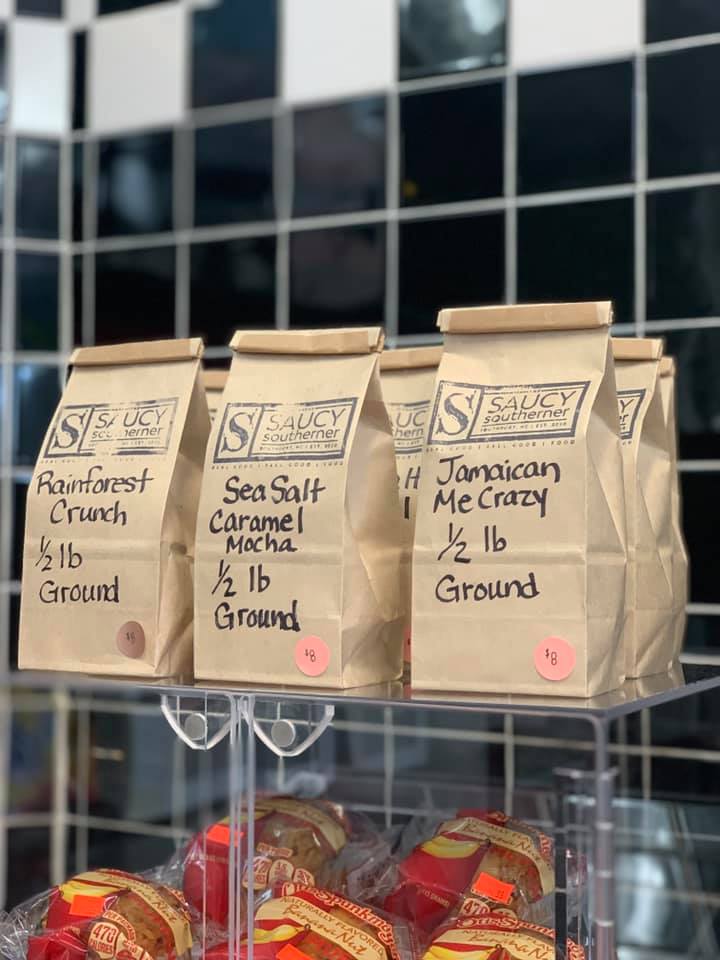 S SAUCY
southerner
Rainforest
Crunch
1/2 lb
Ground
$8
S SAUCY
southerner
SOUTHPORT, NC | EST. 2018
REAL GOOD | FEEL GOOD | FOOD
Sea Salt
Caramel
Mocha
1/2 lb
Ground
$8
S SAUCY
southerner
Jamaican
Me Crazy
1/2 lb
Ground
$8
Otis Spunkmeyer
NATURALLY FLAVORED
Banana Nut
470
CALORIES